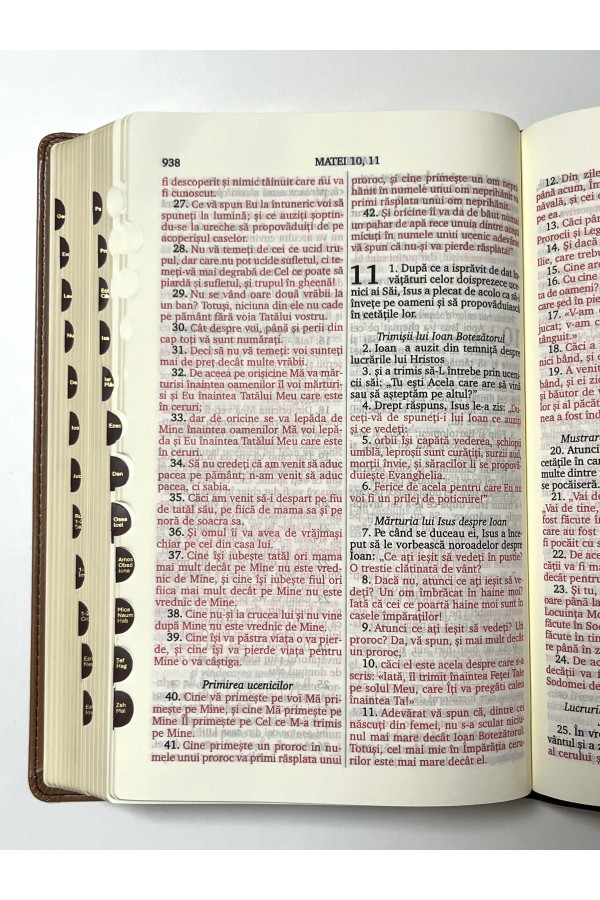 938
MATEI 10, 11
fi descoperit și nimic tăinuit care nu va
fi cunoscut.
27. Ce vă spun Eu la întuneric voi să
spuneți la lumină; și ce auziți șoptin-
du-se la ureche să propovăduiți de pe
acoperișul caselor.
28. Nu vă temeți de cei ce ucid tru-
pul, dar care nu pot ucide sufletul, ci te-
meți-vă mai degrabă de Cel ce poate să
piardă și sufletul, și trupul în gheenă!
29. Nu se vând oare două vrăbii la
un ban? Totuși, niciuna din ele nu cade
pe pământ fără voia Tatălui vostru.
30. Cât despre voi, până și perii din
cap toți vă sunt numărați.
31. Deci să nu vă temeți: voi sunteți
mai de preț decât multe vrăbii.
32. De aceea pe orișicine Mă va măr-
turisi înaintea oamenilor îl voi mărturi-
si și Eu înaintea Tatălui Meu care este
în ceruri;
33. dar de oricine se va lepăda de
Mine înaintea oamenilor Mă voi lepă-
da și Eu înaintea Tatălui Meu care este
în ceruri.
34. Să nu credeți că am venit să aduc
pacea pe pământ; n-am venit să aduc
pacea, ci sabia.
35. Căci am venit să-i despart pe fiu
de tatăl său, pe fiică de mama sa și pe
noră de soacra sa.
36. Și omul îi va avea de vrăjmași
chiar pe cei din casa lui.
37. Cine își iubește tatăl ori mama
mai mult decât pe Mine nu este vred-
nic de Mine, și cine își iubește fiul ori
fiica mai mult decât pe Mine nu este
vrednic de Mine.
38. Cine nu-și ia crucea lui și nu vine
după Mine nu este vrednic de Mine.
39. Cine își va păstra viața o va pier-
de, și cine își va pierde viața pentru
Mine o va câștiga.
Primirea ucenicilor
40. Cine vă primește pe voi Mă pri-
mește pe Mine, și cine Mă primește pe
Mine Îl primește pe Cel ce M-a trimis
pe Mine.
41. Cine primește un proroc în nu-
mele unui proroc va primi răsplata unui
proroc, și cine primește un om nepri-
hănit în numele unui om neprihănit va
primi răsplata unui om neprihănit.
42. Și oricine îi va da de băut numai
un pahar de apă rece unuia dintre acești
micuți în numele unui ucenic adevărat
vă spun că nu-și va pierde răsplata!"
11 1. După ce a isprăvit de dat în-
vățături celor doisprezece uce-
nici ai Săi, Isus a plecat de acolo ca să-i
învețe pe oameni și să propovăduiască
în cetățile lor.
Trimișii lui Ioan Botezătorul
2. Ioan a auzit din temniță despre
lucrările lui Hristos
3. și a trimis să-L întrebe prin uce-
nicii săi: „Tu ești Acela care are să vină
sau să așteptăm pe altul?"
4. Drept răspuns, Isus le-a zis: „Du-
ceți-vă de spuneți-i lui Ioan ce auziți
și ce vedeți:
5. orbii își capătă vederea, șchiopii
umblă, leproșii sunt curățiți, surzii aud,
morții învie, și săracilor li se propovă-
duiește Evanghelia.
6. Ferice de acela pentru care Eu nu
voi fi un prilej de poticnire!"
Mărturia lui Isus despre Ioan
7. Pe când se duceau ei, Isus a înce-
put să le vorbească noroadelor despre
Ioan: „Ce ați ieșit să vedeți în pustie?
O trestie clătinată de vânt?
8. Dacă nu, atunci ce ați ieșit să ve-
deți? Un om îmbrăcat în haine moi?
Iată că cei ce poartă haine moi sunt în
casele împăraților!
9. Atunci ce ați ieșit să vedeți? Un
proroc? Da, vă spun, și mai mult decât
un proroc,
10. căci el este acela despre care s-a
scris: «Iată, îl trimit înaintea Feței Tale
pe solul Meu, care Îți va pregăti calea
înaintea Ta!»
11. Adevărat vă spun că, dintre cei
născuți din femei, nu s-a sculat niciu-
nul mai mare decât Ioan Botezătorul.
Totuși, cel mai mic în Împărăția ceru-
rilor este mai mare decât el.
12. Din zile
până acum, Îm
năvală, și cei
pe ea.
13. Căci până
Prorocii și Leg
14. Și dacă
15. Cine are
16. Cu cine
Ea
care șed în pie
17. «V-am
jucat; v-am
tânguit.»
18. Căci a
când nici bând,
19. A venit
bând, și ei zic
și băutor de v
lor și al păcăt
a fost îndr
Mustrar
20. Atunci
cetățile în car
sale minuni,
se pocăiseră.
21. „Vai de
Vai de tine,
fost făcute în
au făcut în
fi pocăit cu s
22. De acee
ția va fi mai
decât pentru
23. Și tu,
până la
până la locui
fi fost făcute
făcute în
Sodoma ea
24. De ace
decății va fi
Sodomei dec
Lucruri
25. În vre
vântul și a z
al cerului ș
Ps
Pro
Isa
Ezec
Dan
Osea
Ioel
Amos
Obad
Iona
Mica
Naum
Hab
Țef
Hag
Zah
Mal